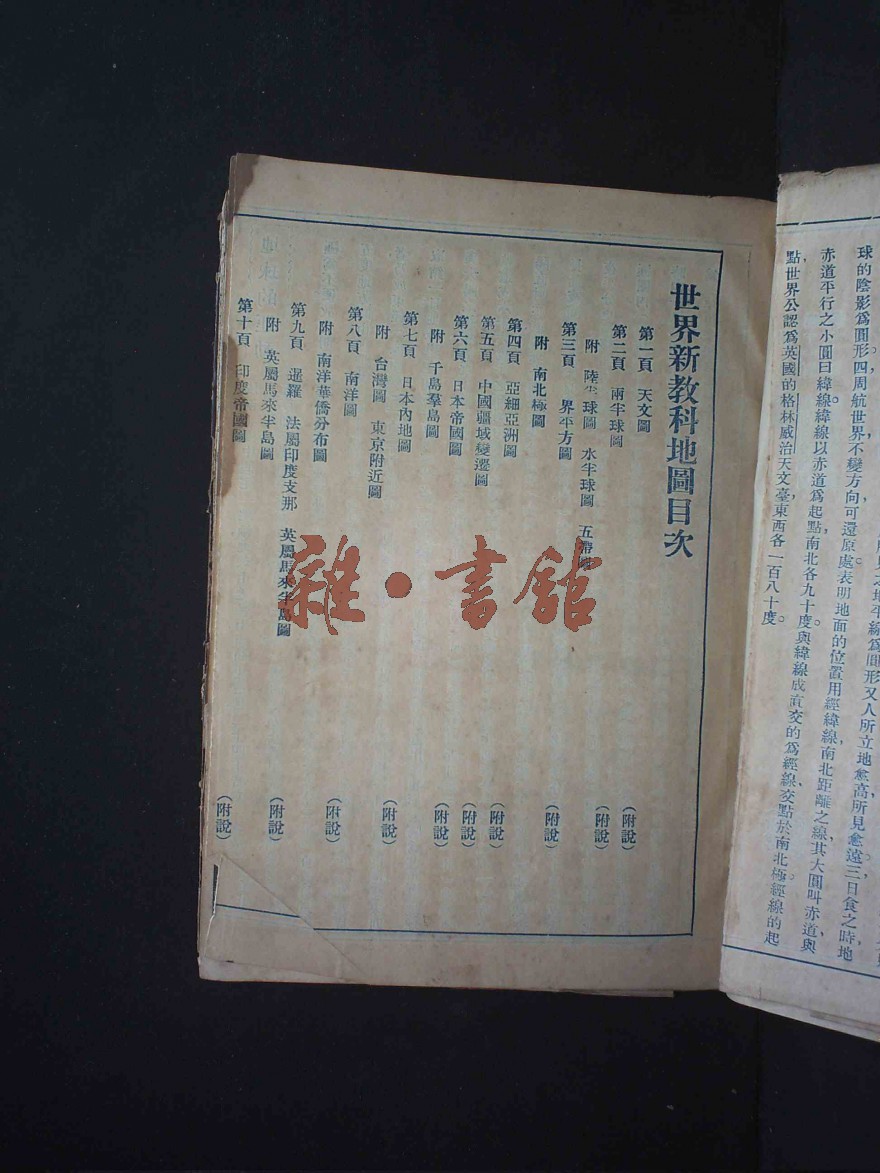 球的陰影爲圓形。四周航世界不變方向可還原處。表明地面的位置用經緯線南北距離之線其大圓叫赤道與
赤道平行之小圓曰緯線緯線以赤道爲起點南北各九十度。與緯線成直交的爲經線交點於南北極。經線的起
點世界公認爲英國的格林威治天文臺東西各一百八十度。
世界新教科地圖目次
第一頁 天文圖 (附說)
第二頁 兩半球圖 (附說)
附 陸半球圖 水半球圖 五帶圖
第三頁 界平方圖
附 南北極圖 (附說)
第四頁 亞細亞洲圖
第五頁 中國疆域變遷圖 (附說)
第六頁 日本帝國圖 (附說)
附 千島羣島圖 (附說)
第七頁 日本內地圖
附 台灣圖 東京附近圖 (附說)
第八頁 南洋圖
附 南洋華僑分布圖 (附說)
第九頁 暹羅 法屬印度支那 英屬馬來半島圖
附 英屬馬來半島圖 (附說)
第十頁 印度帝國圖 (附說)
雜·書館